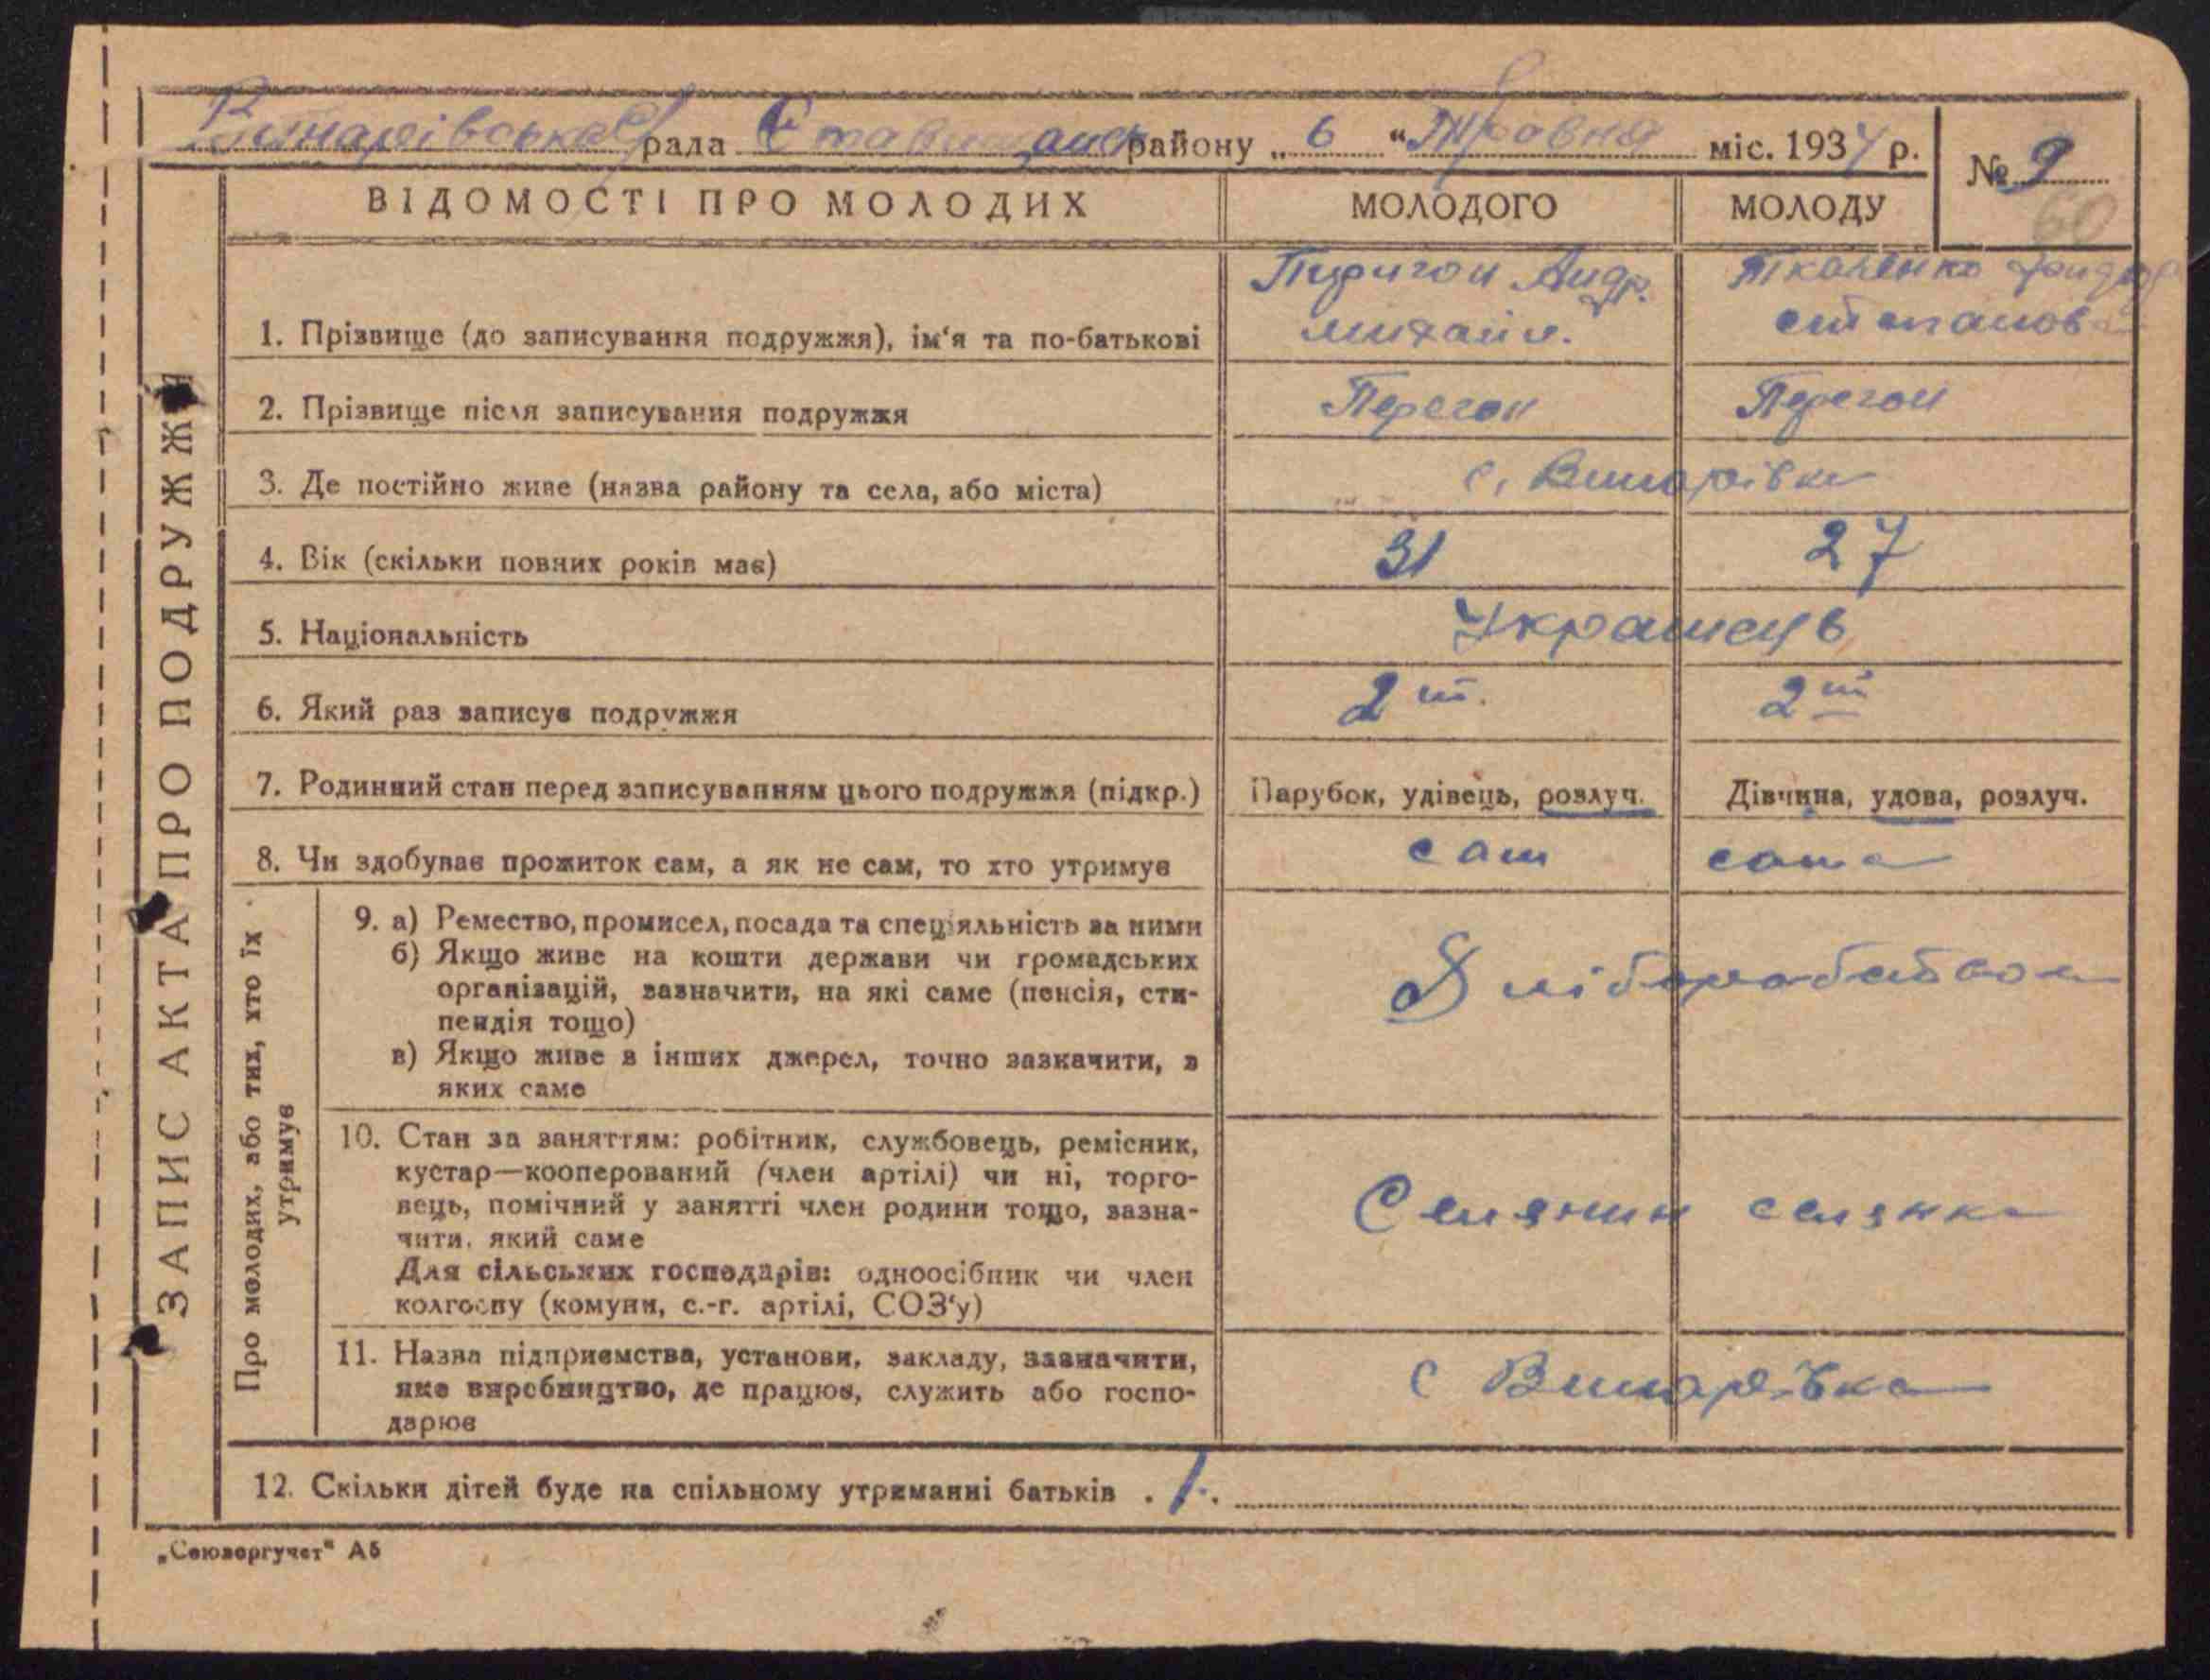 Винарівська с/рада Ставищанськ району „ 6 “ Травня міс. 1934 р.
№ 9
60
ВІДОМОСТІ ПРО МОЛОДИХ МОЛОДОГО МОЛОДУ
ЗАПИС АКТА ПРО ПОДРУЖЖЯ
1. Прізвище (до записування подружжя), ім‘я та по-батькові
Андр. Ткаченко
михайл. степанов
2. Прізвище після записування подружжя Перегон Перегон
3. Де постійно живе (назва району та села, або міста) с. Винарівка
4. Вік (скільки повних років має) 31 27
5. Національність Українець
6. Який раз записує подружжя 2 2
7. Родинний стан перед записуванням цього подружжя (підкр.) Парубок, удівець, розлуч. Дівчина, удова, розлуч.
8. Чи здобуває прожиток сам, а як не сам, то хто утримує сам сама
Про молодих, або тих, хто їх
утримує
9. а) Ремество, промисел, посада та спеціяльність за ними
б) Якщо живе на кошти держави чи громадських
організацій, зазначити, на які саме (пенсія, сти-
пендія тощо)
в) Якщо живе з інших джерел, точно зазкачити, з
яких саме
10. Стан за заняттям: робітник, службовець, ремісник,
кустар—кооперований (член артілі) чи ні, торго-
вець, помічний у занятті член родини тощо, зазна-
чити, який саме
Для сільських господарів: одноосібник чи член
колгоспу (комуни, с.-г. артілі, СОЗ‘у)
Селянин селянка
11. Назва підприємства, установи, закладу, зазначити,
яке виробництво, де працює, служить або госпо-
дарює
с Винарівка
12. Скільки дітей буде на спільному утриманні батьків . 1 .
„Союзоргучет“ А5